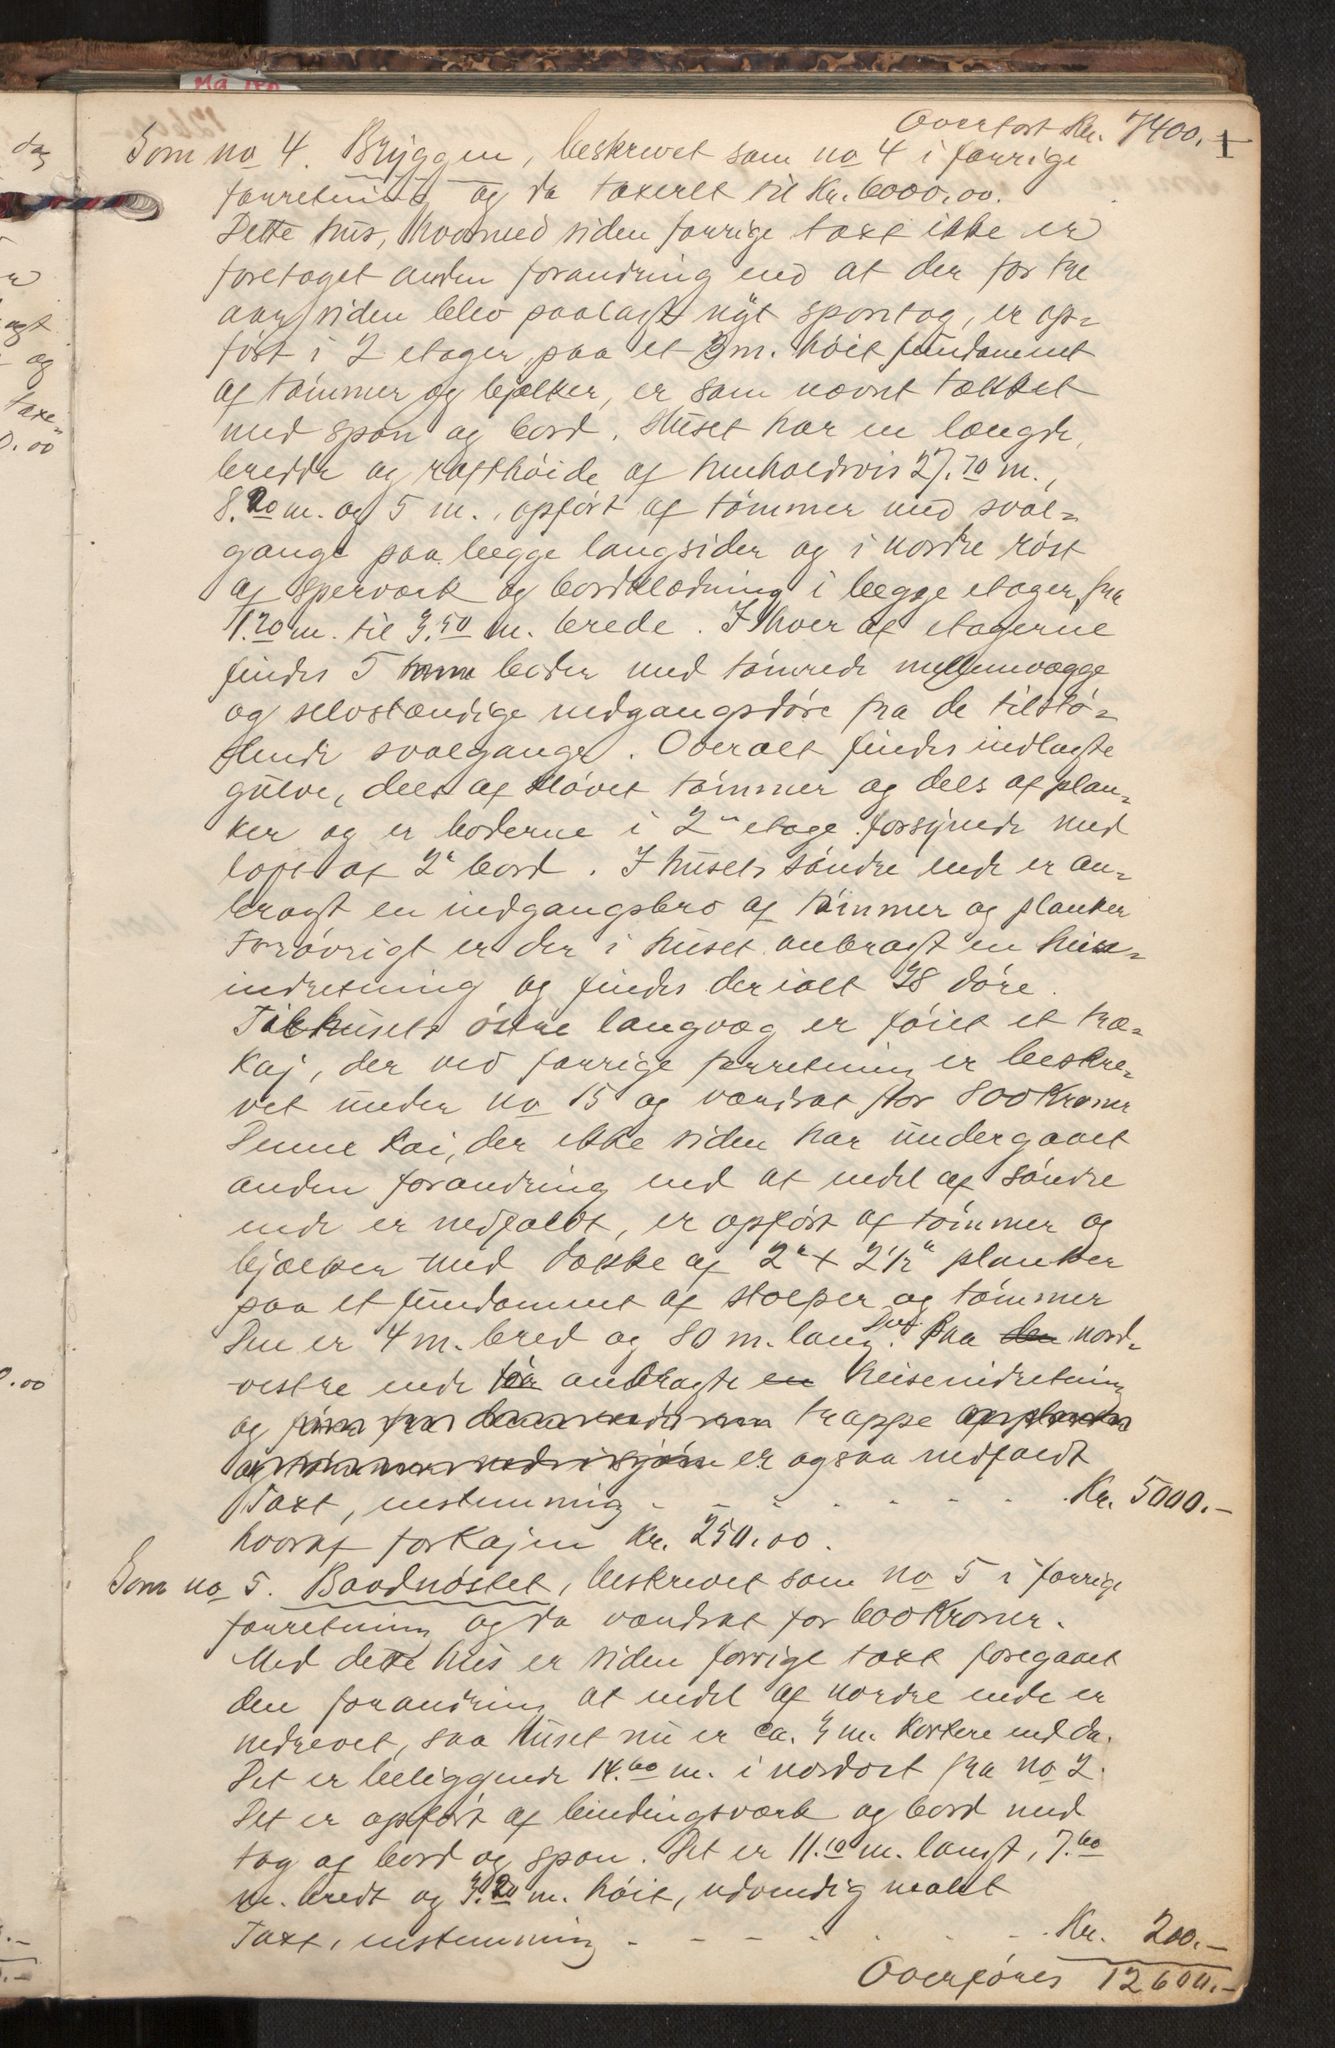 Overført Kr. 7400.-
1
Som no 4. Bryggen, beskrevet som no 4 i forrige
forretning og da taxeret til Kr. 6000.00.
Dette hus, hvormed siden forrige taxt ikke er
foretaget anden forandring end at der for tre
aar siden blev paalagt nyt spontag, er op-
ført i 2 etager paa et 3 m. høit fundament
af tømmer og bjelker, er som nævnt tækket
med spon og bord. Huset har en længde,
bredde og rafthøide af henholdsvis 27.70 m.,
8.20 m. og 5 m., opført af tømmer med sval-
gange paa begge langsider og i nordre røst
af sperværk og bordklædning i begge etager, fra
1.20 m. til 3.50 m. brede. I hver af etagerne
findes 5 boder med tømrede mellemvægge
og selvstændige indgangsdøre fra de tilstø-
dende svalgange. Overalt findes indlagte
gulve, dels af kløvet tømmer og dels af plan-
ker og er boderne i 2den etage forsynede med
loft af 2" bord. I husets søndre ende er an-
bragt en indgangsbro af tømmer og planker
Forøvrigt er der i huset anbragt en heise-
indretning og findes der ialt 38 døre.
Til husets østre langvæg er føiet et træ-
kaj, der ved forrige forretning er beskre-
vet under no 15 og værdsat for 800 Kroner
Denne kai, der ikke siden har undergaaet
anden forandring end at endel af søndre
ende er nedfaldt, er opført af tømmer og
bjælker med dække af 2" + 2 1/2" planker
paa et fundament af stolper og tømmer
Den er 4 m. bred og 80 m. lang. Den paa den nord-
vestre ende anbragte en heiseindretning
og trappe af planker
og tømmer ned i sjøen er ogsaa nedfaldt
Taxt, enstemmig - - - - - - - Kr. 5000.-
hvoraf for kajen Kr. 250.00.
Som no 5. Baadnøstet, beskrevet som no 5 i forrige
forretning og da værdsat for 600 Kroner.
Med dette hus er siden forrige taxt foregaaet
den forandring at endel af nordre ende er
nedrevet, saa huset nu er ca. 3 m. kortere end da.
Det er beliggende 14.60 m. i nordost fra no 2.
Det er opført af bindingsværk og bord med
tag af bord og spon. Det er 11.10 m. langt, 7.60
m. bredt og 3.20 m. høit, udvendig malet
Taxt, enstemmig - - - - - - - Kr. 200.-
Overføres 12600.-